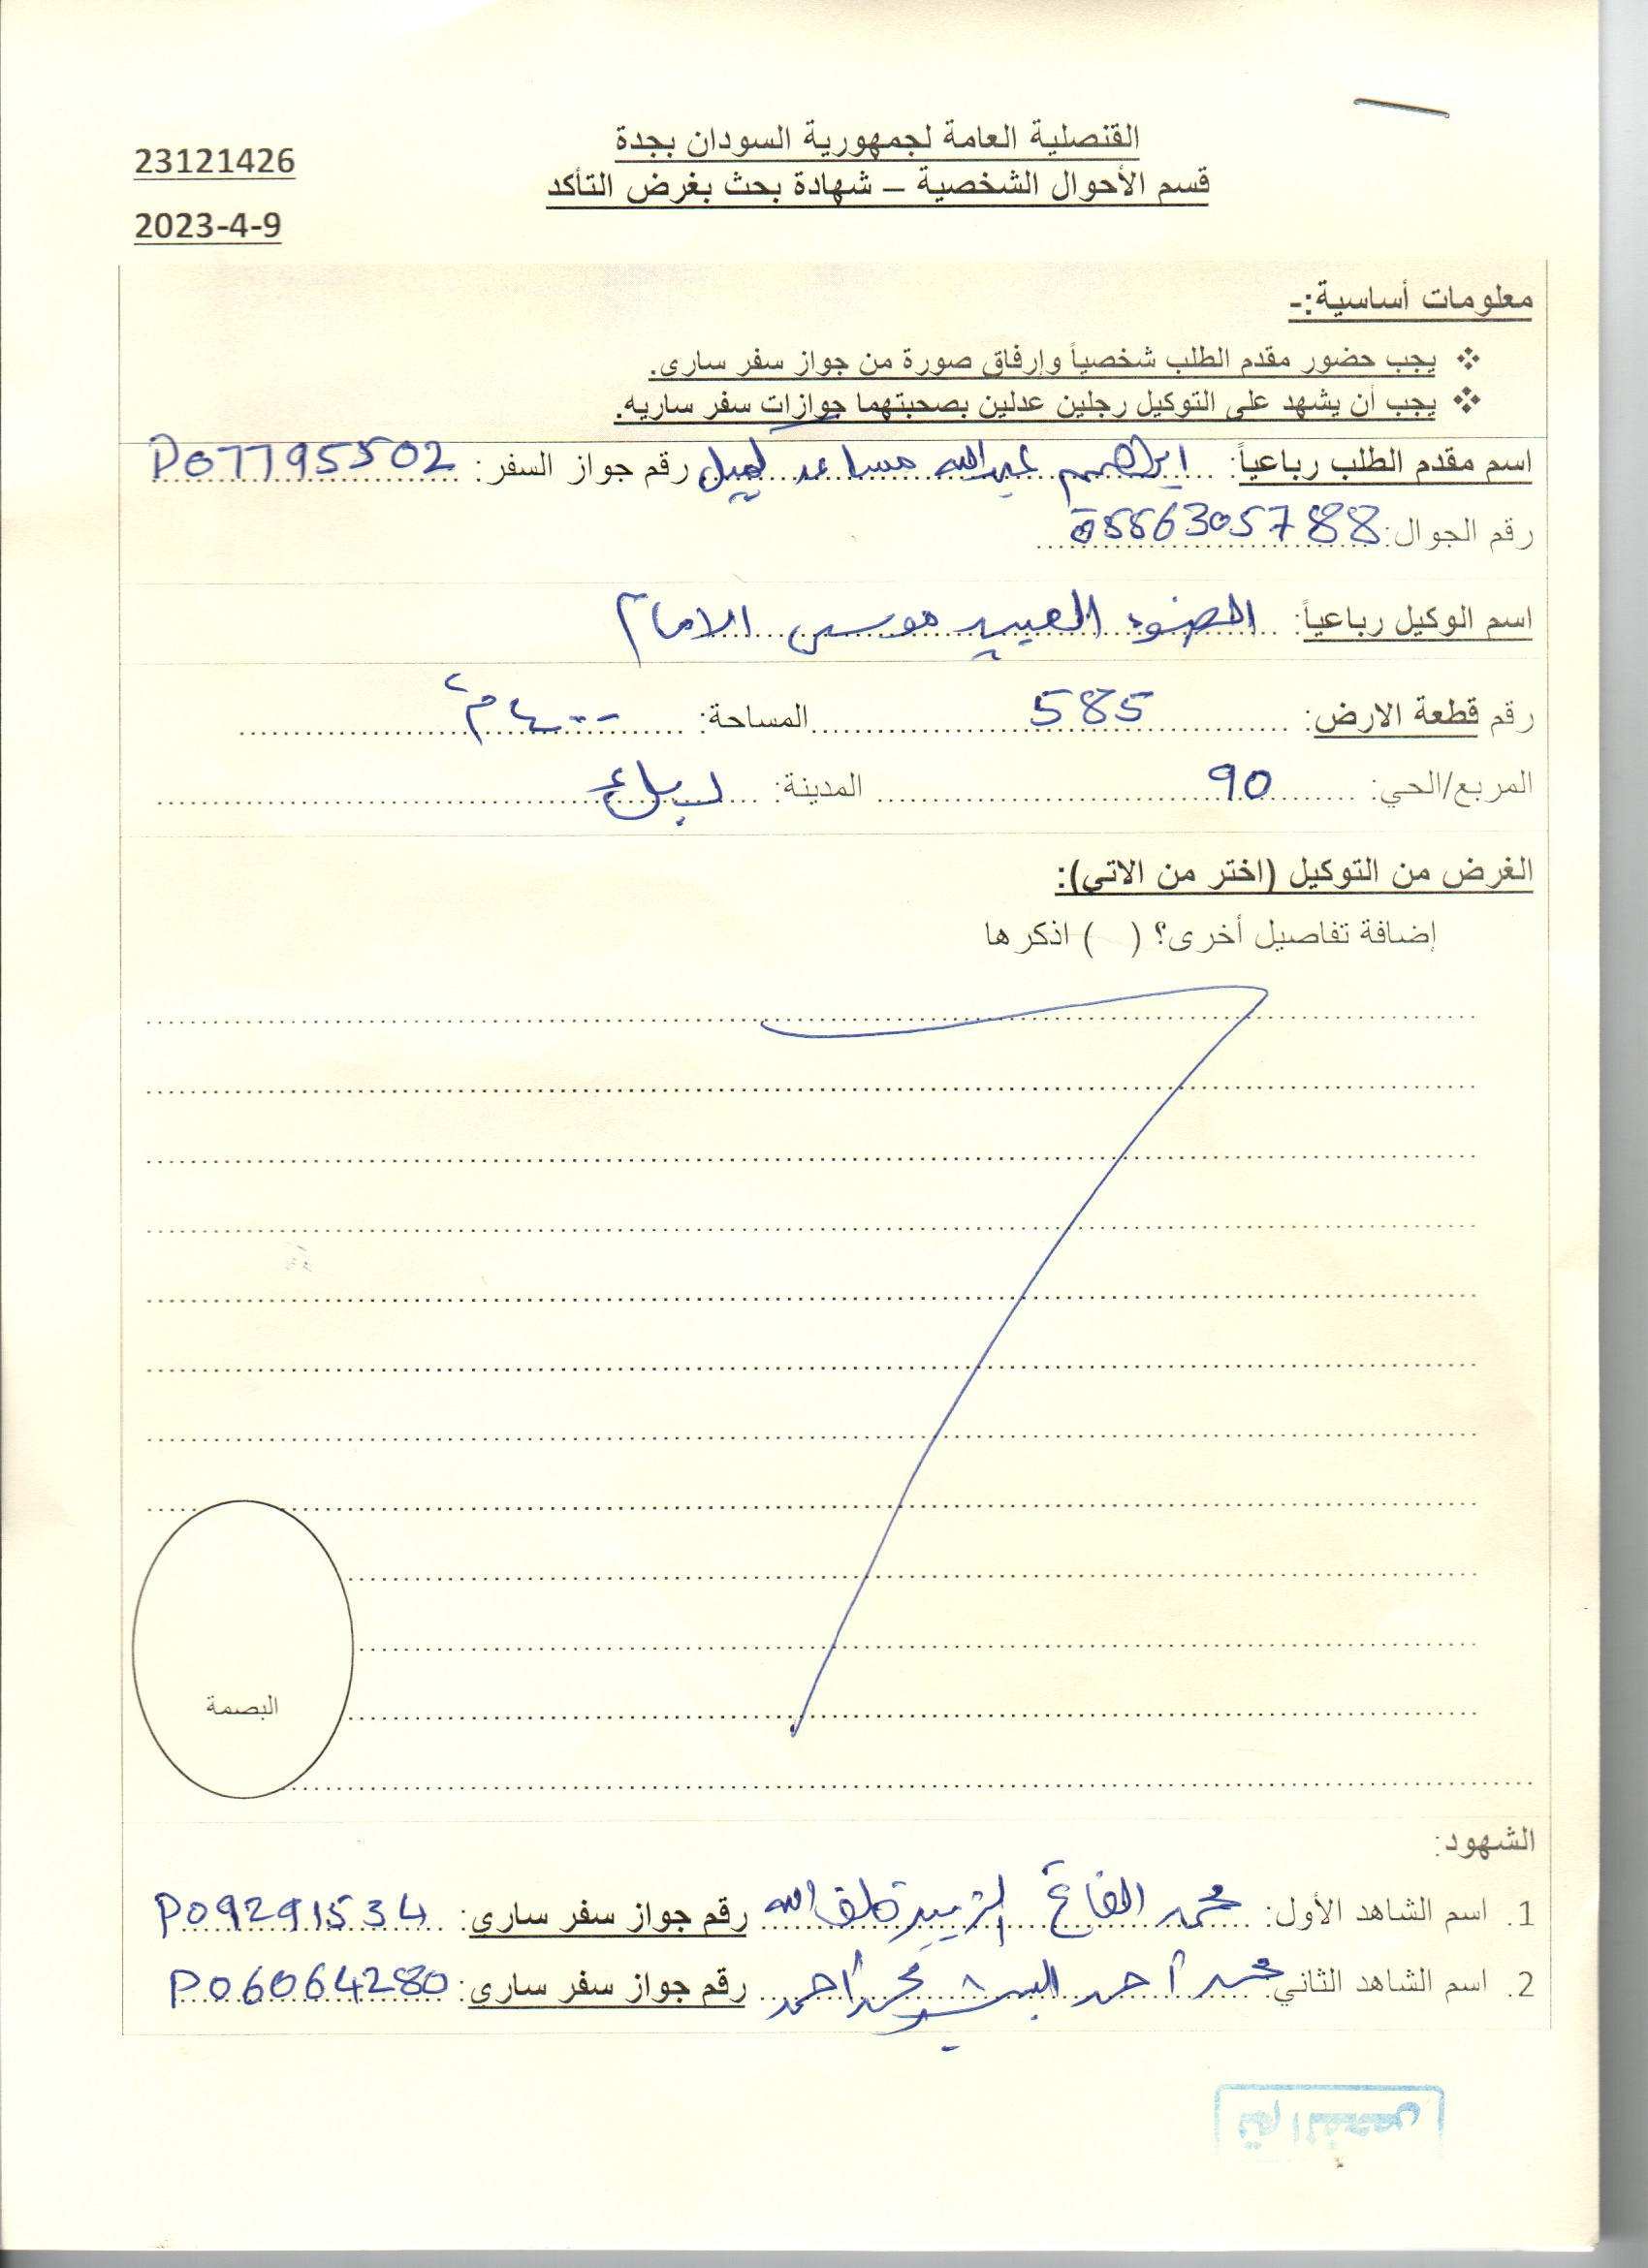 القنصلية العامة لجمهورية السودان بجدة
23121426
قسم الأحوال الشخصية – شهادة بحث بغرض التأكد
2023-4-9
معلومات أساسية:-
❖ يجب حضور مقدم الطلب شخصياً وإرفاق صورة من جواز سفر سارى.
❖ يجب أن يشهد على التوكيل رجلين عدلين بصحبتهما جوازات سفر ساريه.
اسم مقدم الطلب رباعياً: ابراهيم عبدالله مساعد رقم جواز السفر: P07795502
رقم الجوال: 0556305788
اسم الوكيل رباعياً: العبيد موسى الامام
رقم قطعة الارض: 585 المساحة: ٤٠٠ م٢
المربع/الحي: 90 المدينة:
الغرض من التوكيل (اختر من الاتى):
إضافة تفاصيل أخرى؟ ( ) اذكرها
البصمة
الشهود:
1. اسم الشاهد الأول: محمد الفاتح الزبير خلف الله رقم جواز سفر سارى: P09291534
2. اسم الشاهد الثاني: محمد أحمد البشير محمد أحمد رقم جواز سفر سارى: P06064280
تم الفحص